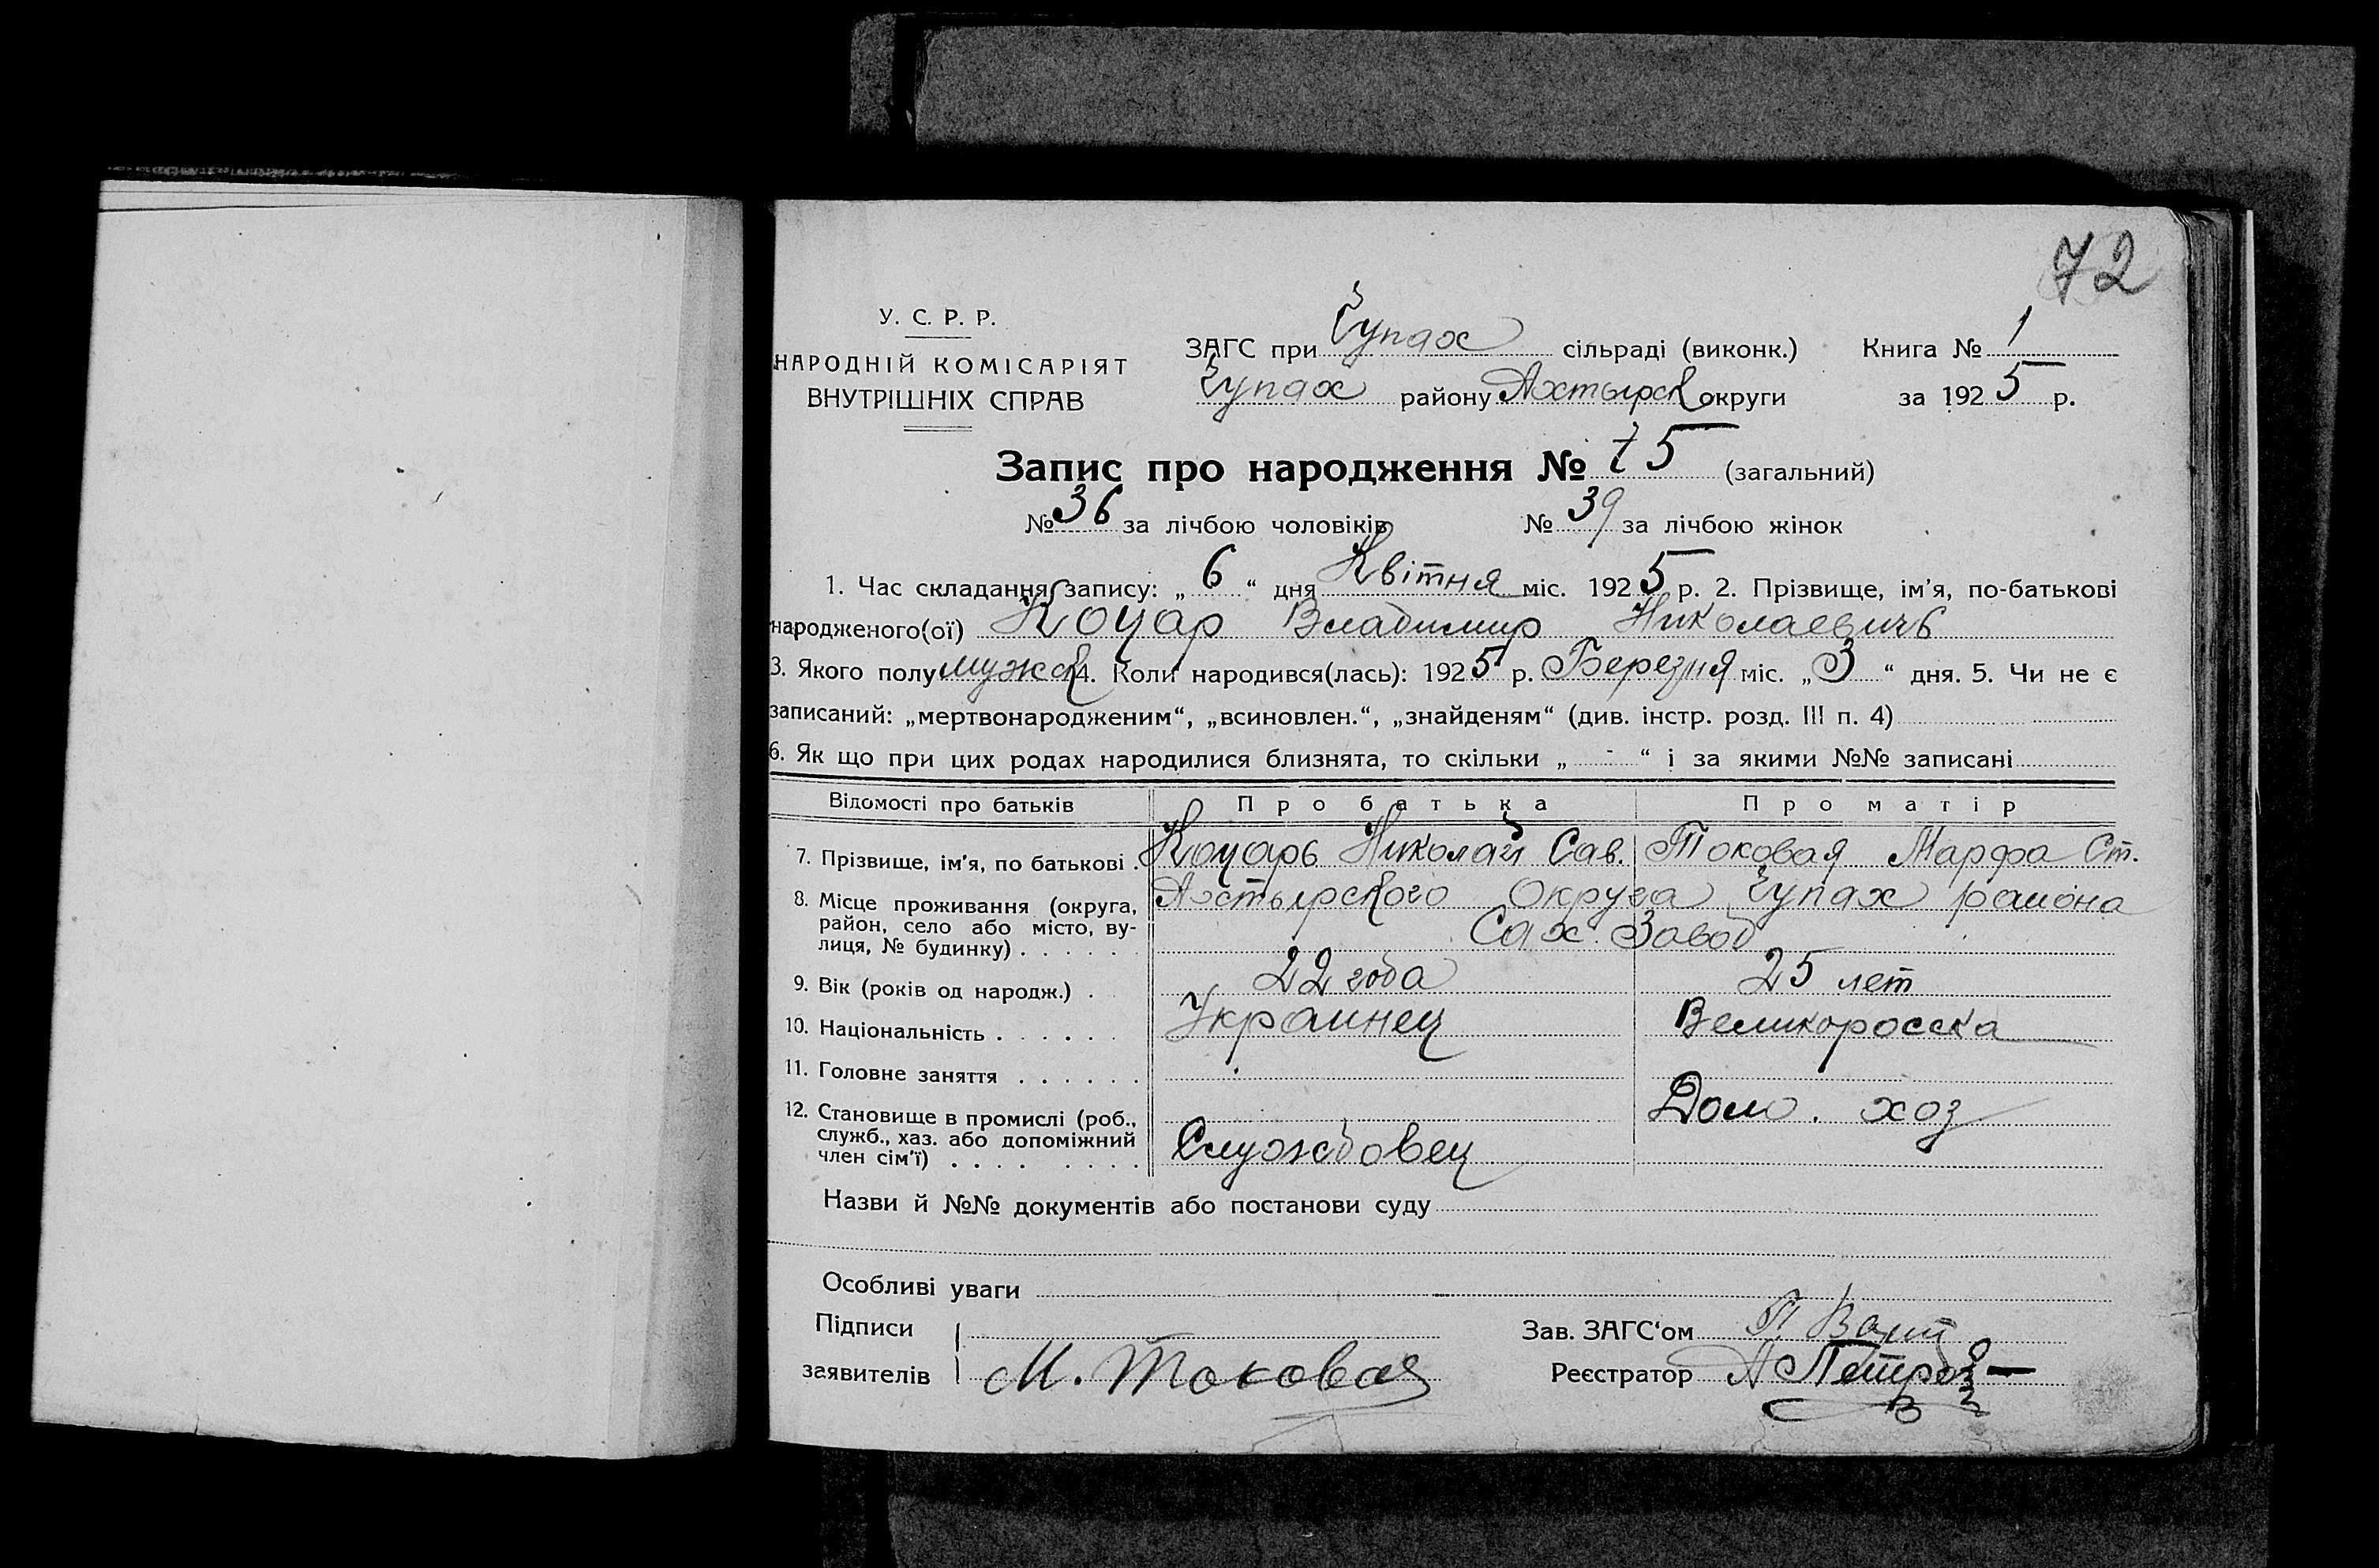 72
У. С. Р. Р.
НАРОДНІЙ КОМІСАРІЯТ
ВНУТРІШНІХ СПРАВ
ЗАГС при Чупах сільраді (виконк.) Книга № 1
Чупах району Ахтырск округи за 1925 р.
Запис про народження № 75 (загальний)
№ 36 за лічбою чоловіків № 39 за лічбою жінок
1. Час складання запису: „ 6 “ дня Квітня міс. 1925 р. 2. Прізвище, ім'я, по-батькові
народженого(ої) Коцар Владимир Николаевичь
3. Якого полу мужск 4. Коли народився(лась): 1925 р. Березня міс. „ 3 “ дня. 5. Чи не є
записаний: „мертвонародженим“, „всиновлен.“, „знайденям“ (див. інстр. розд. III п. 4)
6. Як що при цих родах народилися близнята, то скільки „ - “ і за якими №№ записані
Відомості про батьків Про батька Про матір
7. Прізвище, ім'я, по батькові . Коцарь Николай Сав. Токовая Марфа Ст.
8. Місце проживання (округа, район, село або місто, ву-лиця, № будинку) . . . . . . Ахтырского Округа Чупах района
Сах. Завод
9. Вік (років од народж.) . 22 года 25 лет
10. Національність . . . . . . Украинец Великоросска
11. Головне заняття . . . . . .
12. Становище в промислі (роб., Домо. хоз
служб., хаз. або допоміжний
член сім'ї) . . . . . . . . Службовец
Назви й №№ документів або постанови суду
Особливі уваги
Підписи
заявителів М. Токовая
Зав. ЗАГС'ом П.
Реєстратор А Петров